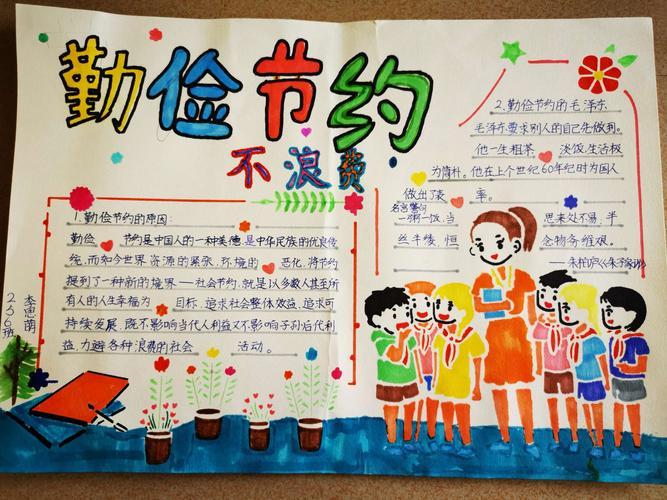 勤俭节约
不浪费
1.勤俭节约的原因:
勤俭 节约是中国人的一种美德,是中华民族的优良传
统,而如今世界资源的紧张,环境的 恶化,将节约
提到了一种新的境界——社会节约,就是以多数人甚至所
有人的人生幸福为 目标,追求社会整体效益,追求可
持续发展,既不影响当代人利益又不影响子孙后代利
益,力避各种浪费的社会 活动。
2.勤俭节约的毛泽东
毛泽东要求别人的自己先做到。
他一生粗茶 淡饭,生活极
为简朴。他在上个世纪60年纪时为国人
做出了表 率。
名言警句
一粥一饭,当 思来处不易,半
丝半缕,恒 念物力维艰。
——朱柏庐《朱子家训》
236班
李思萌